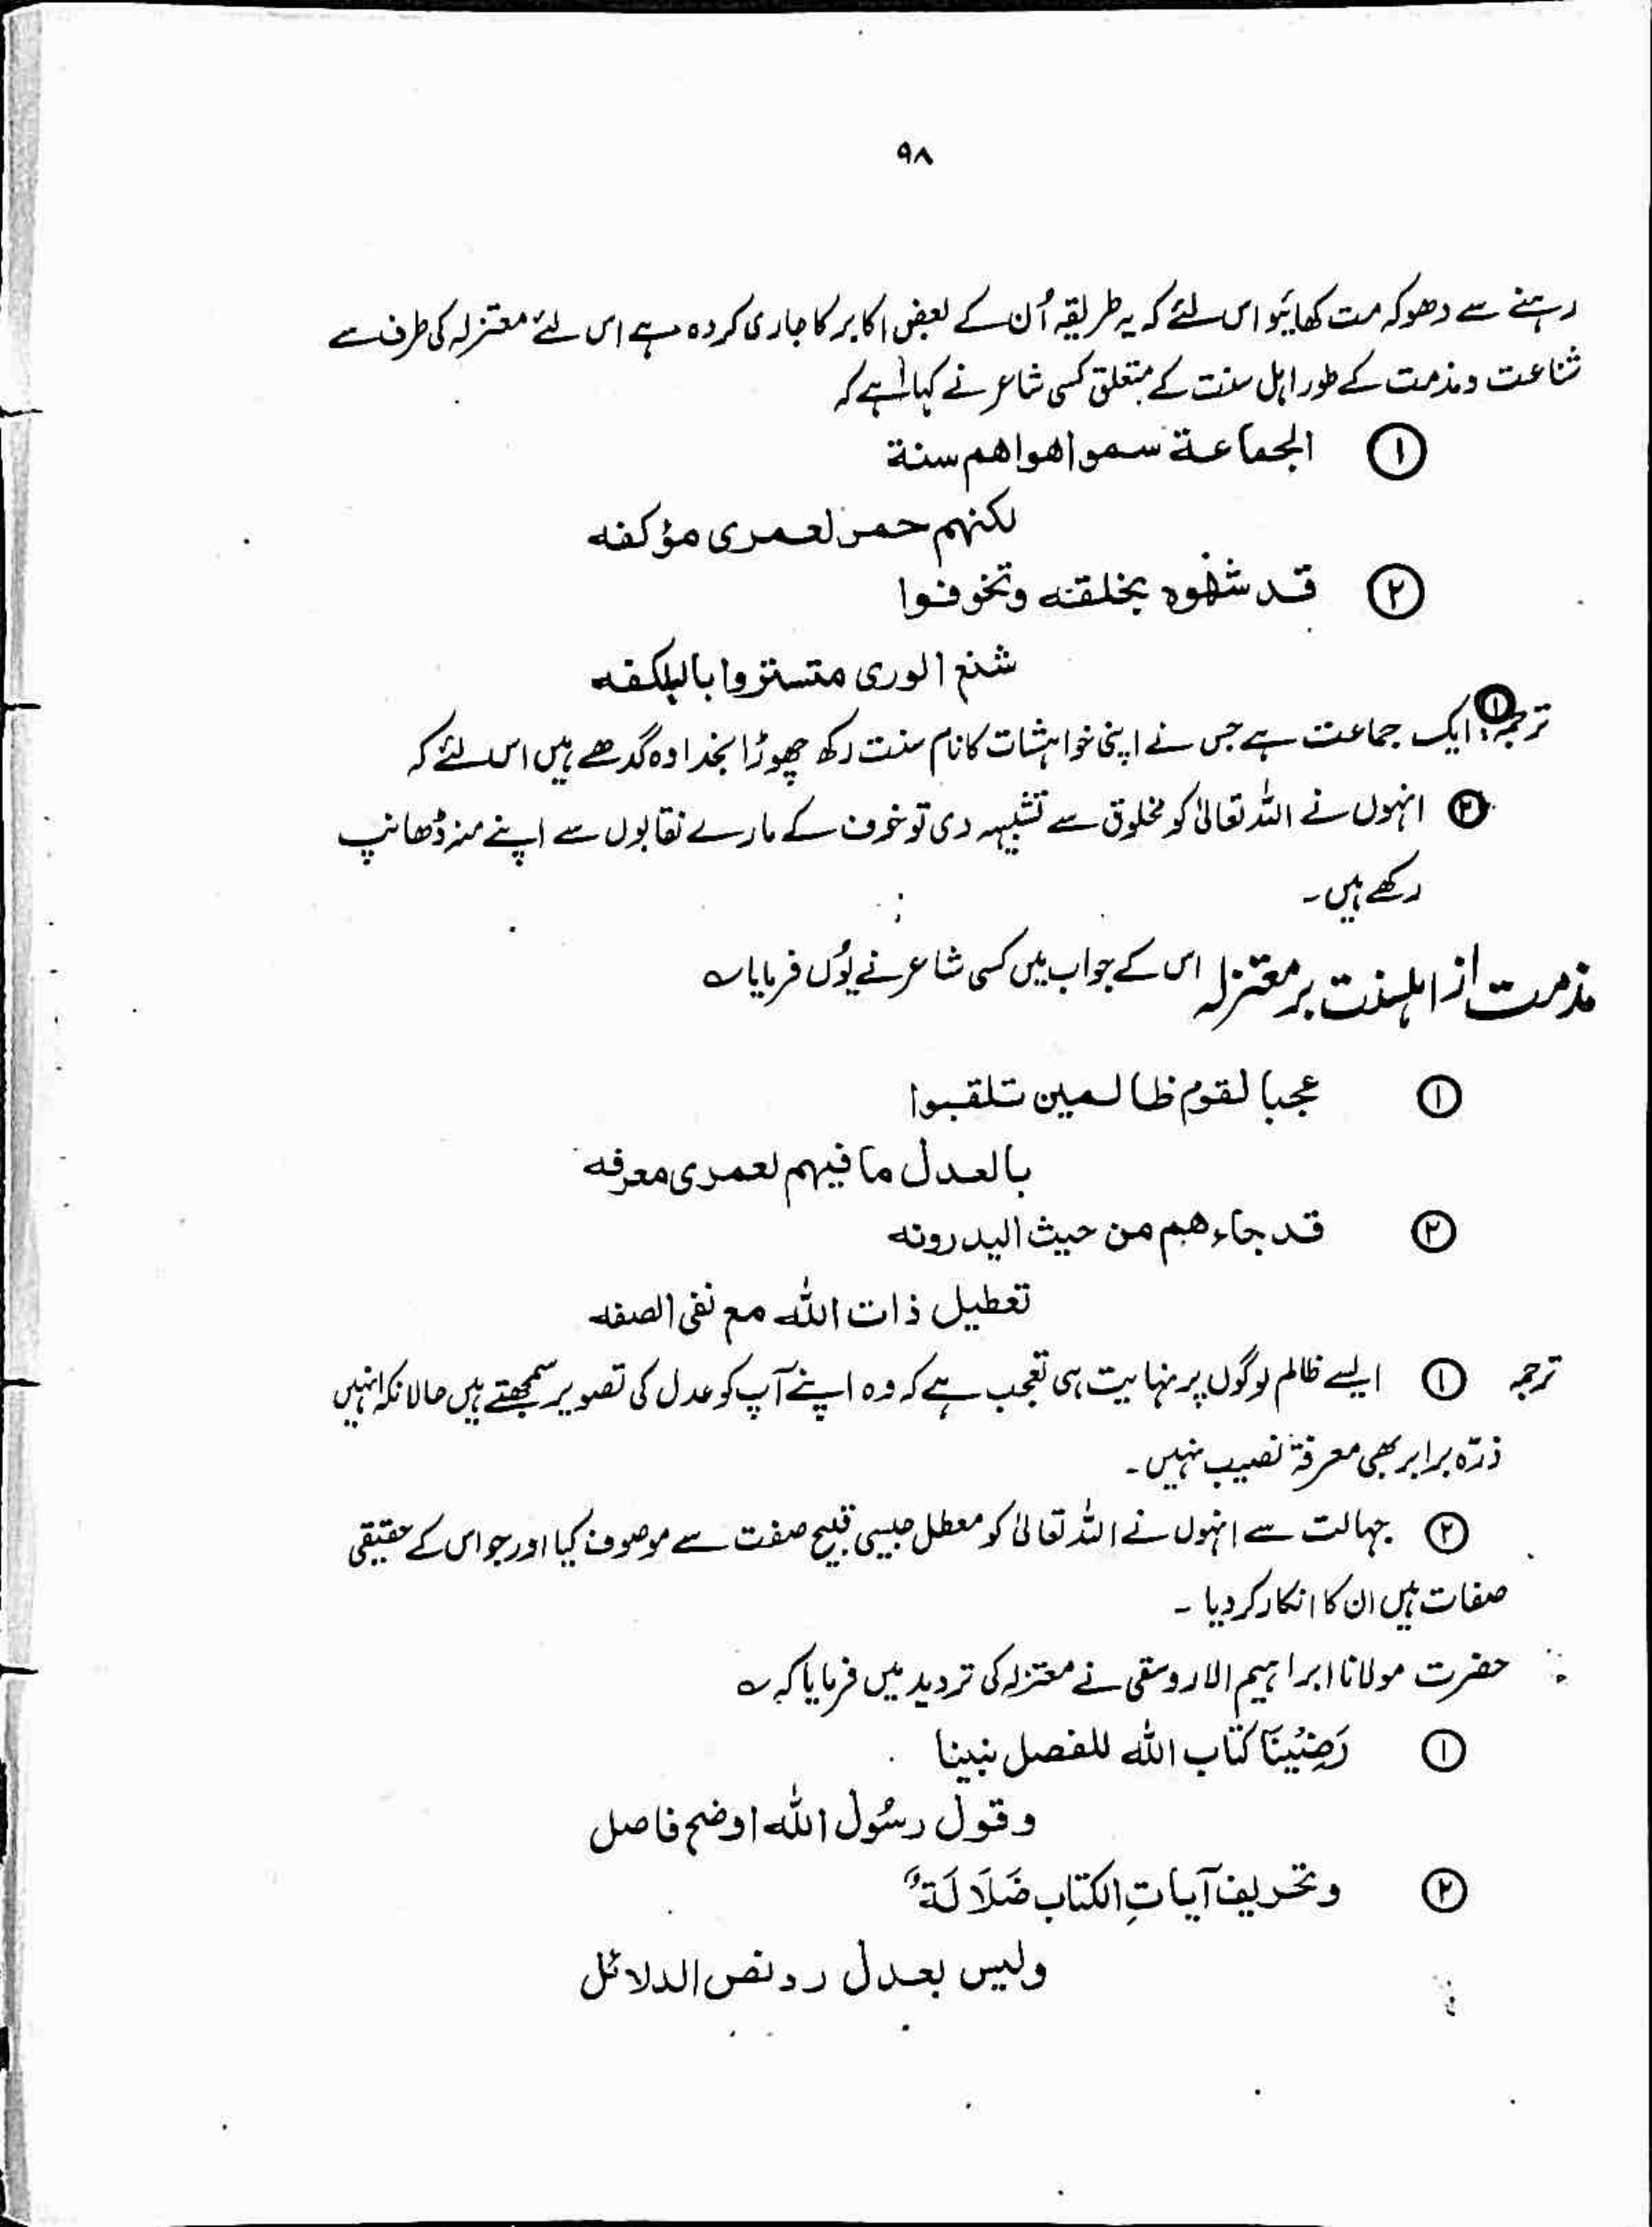 ۹۸
رہنے سے دھوکہ مت کھائیو اس لئے کہ یہ طریقہ اُن کے بعض اکابر کا جاری کردہ ہے اس لئے معتزلہ کی طرف سے
شناعت و مذمت کے طور اہل سنت کے متعلق کسی شاعر نے کہا ہے کہ
① الجماعة سموا هواهم سنة
لكنهم حمر لعمرى مؤكفه
② قد شبهوه بخلقه وتخوفوا
شنع الورى متستروا بالبلكفه
ترجمہ: ① ایک جماعت ہے جس نے اپنی خواہشات کا نام سنت رکھ چھوڑا بخدا وہ گدھے ہیں اس لئے کہ
② انہوں نے اللہ تعالیٰ کو مخلوق سے تشبیہہ دی تو خوف کے مارے نقابوں سے اپنے منہ ڈھانپ
رکھے ہیں۔
مذمت از اہلسنت بر معتزلہ اس کے جواب میں کسی شاعر نے یوُں فرمایا ؎
① عجبا لقوم ظالمين تلقبوا
بالعدل ما فيهم لعمرى معرفه
② قد جاءهم من حيث اليدرونه
تعطيل ذات الله مع نفى الصفه
ترجمہ ① ایسے ظالم لوگوں پر نہایت ہی تعجب ہے کہ وہ اپنے آپ کو عدل کی تصویر سمجھتے ہیں حالانکہ انہیں
ذرّہ برابر بھی معرفۃ نصیب نہیں۔
② جہالت سے انہوں نے اللہ تعالیٰ کو معطل جیسی قبیح صفت سے موصوف کیا اور جو اس کے حقیقی
صفات ہیں ان کا انکار کر دیا ۔
حضرت مولانا ابراہیم الاروسقی نے معتزلہ کی تردید میں فرمایا کہ ؎
① رَضِيْنَا كتاب الله للفصل بنينا
وقول رسُول الله اوضح فاصل
② وتحريف آياتِ الكتاب ضَلَالَةٌ
وليس بعدل رد نص الدلائل